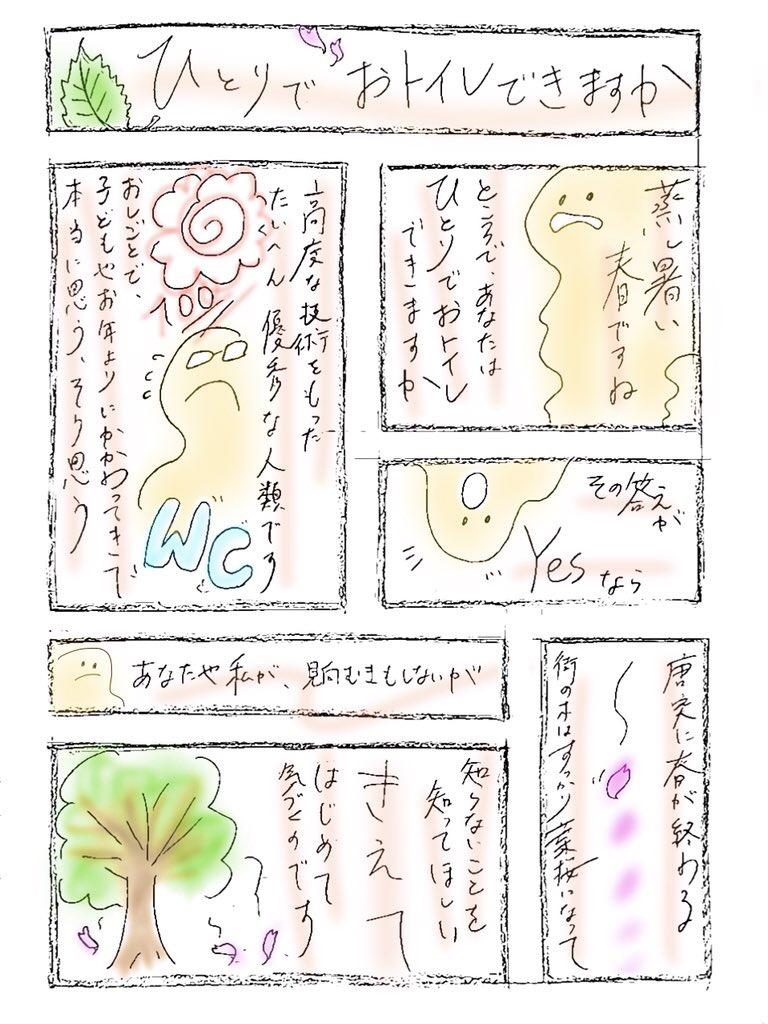 ひとりで おトイレできますか
蒸し暑い
春ですね
ところで、あなたは
ひとりでおトイレ
できますか
その答えが
Yes なら
高度な技術をもった
たいへん 優秀な人類です
100
おしごとで、
子どもやお年よりにかかわってきて
本当に思う、そう思う
WC
唐突に春が終わる
街の木はすっかり葉桜になって
あなたや私が、見向きもしないが
知らないことを
知ってほしい
きえて
はじめて
気づくのです